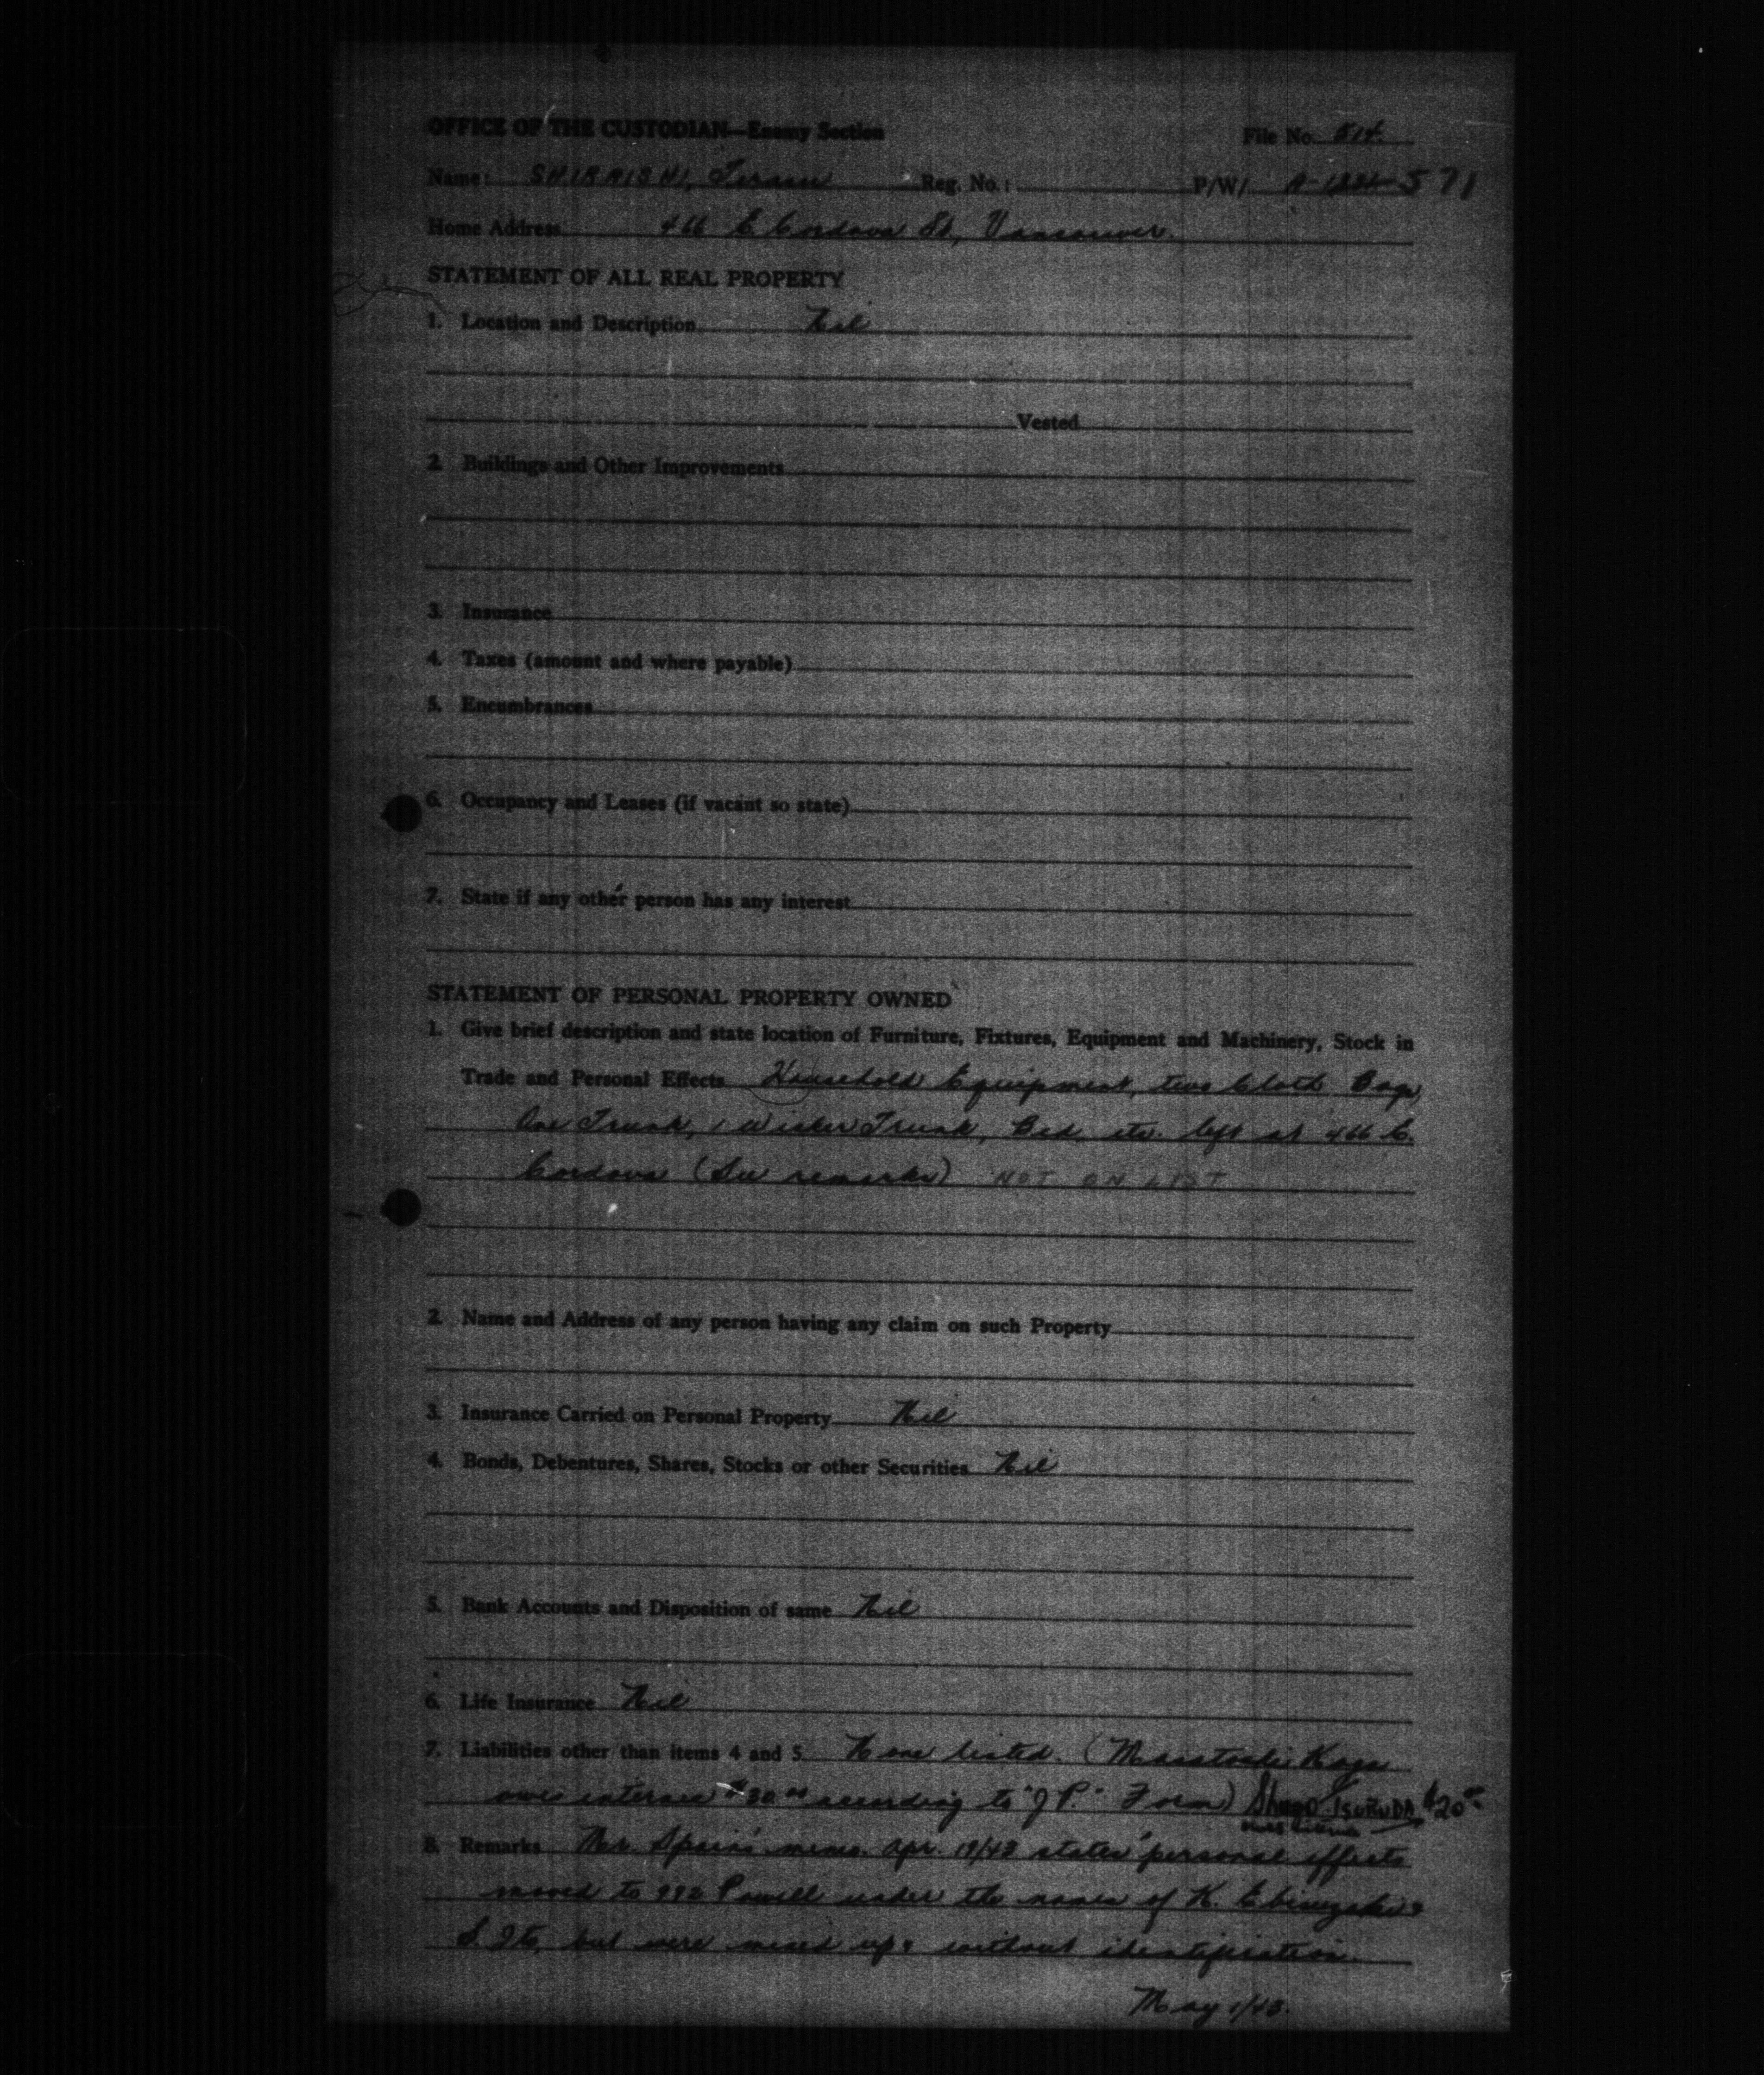 OFFICE OF THE CUSTODIAN—Enemy Section File No. 514.
Name: SHIRAISHI, Reg. No.: P/W/ A- 571
Home Address 466 E Cordova St., Vancouver.
STATEMENT OF ALL REAL PROPERTY
1. Location and Description Nil
Vested
2. Buildings and Other Improvements
3. Insurance
4. Taxes (amount and where payable)
5. Encumbrances
6. Occupancy and Leases (if vacant so state)
7. State if any other person has any interest
STATEMENT OF PERSONAL PROPERTY OWNED
1. Give brief description and state location of Furniture, Fixtures, Equipment and Machinery, Stock in
Trade and Personal Effects Household Equipment, two Cloth Bags,
One Trunk, 1 Wicker Trunk, Bed etc. left at 466 E.
Cordova (See remarks) NOT ON LIST
2. Name and Address of any person having any claim on such Property
3. Insurance Carried on Personal Property Nil
4. Bonds, Debentures, Shares, Stocks or other Securities Nil
5. Bank Accounts and Disposition of same Nil
6. Life Insurance Nil
7. Liabilities other than items 4 and 5 None listed. (Masatoshi Kaga
owes internee $30.00 according to "J.P." Form) Shugo TSURUDA $20.00
8. Remarks Mr. Spain's memo. Apr. 19/43 states "personal effects
moved to 992 Powell under the names of K. Ebisuzaki &
S. Ito, but were mixed up & without identification.
May 1/43.